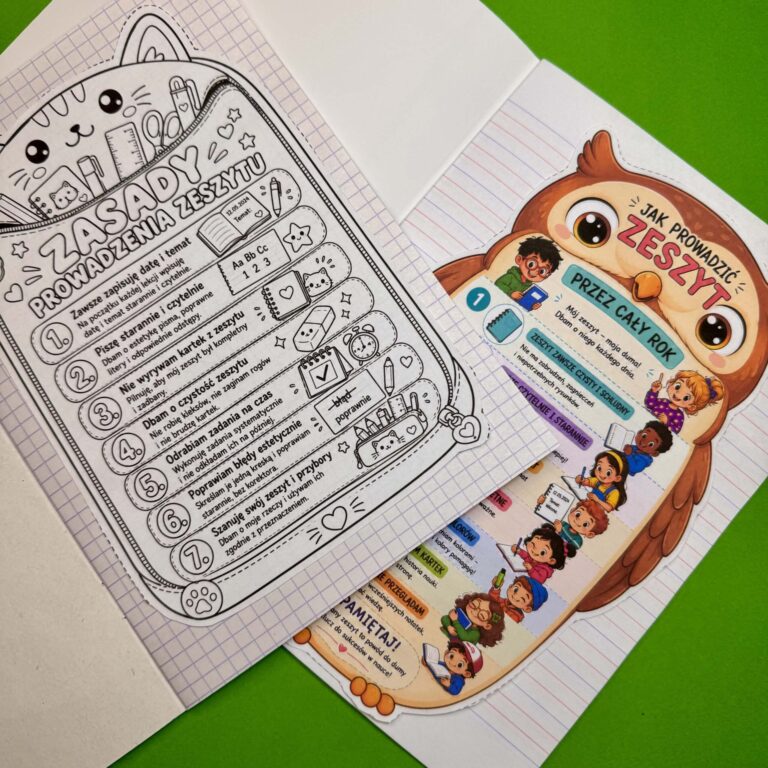 ZASADY
PROWADZENIA ZESZYTU
1.
Zawsze zapisuję datę i temat
Na początku każdej lekcji wpisuję
datę i temat starannie i czytelnie.
12.05.2024
Temat:
2.
Piszę starannie i czytelnie
Dbam o estetykę pisma, poprawne
litery i odpowiednie odstępy.
Aa Bb Cc
1 2 3
3.
Nie wyrywam kartek z zeszytu
Pilnuję, aby mój zeszyt był kompletny
i zadbany.
4.
Dbam o czystość zeszytu
Nie robię kleksów, nie zaginam rogów
i nie brudzę kartek.
5.
Odrabiam zadania na czas
Wykonuję zadania systematycznie
i nie odkładam ich na później.
6.
Poprawiam błędy estetycznie
Skreślam je jedną kreską i poprawiam
starannie, bez korektora.
błąd
poprawnie
7.
Szanuję swój zeszyt i przybory
Dbam o moje rzeczy i używam ich
zgodnie z przeznaczeniem.
JAK PROWADZIĆ
ZESZYT
PRZEZ CAŁY ROK
Mój zeszyt – moja duma!
Dbam o niego każdego dnia.
1
ZESZYT ZAWSZE CZYSTY I SCHLUDNY
Nie ma zabrudzeń, zagnieceń
i niepotrzebnych rysunków.
CZYTELNIE I STARANNIE
12.05.2024
Temat:
ważne.
kolorami –
kolory pomagają!
KARTEK
historia nauki.
stronę.
PRZEGLĄDAM
wcześniejszych notatek,
wiedzę.
PAMIĘTAJ!
zeszyt to powód do dumy
klucz do sukcesów w nauce!